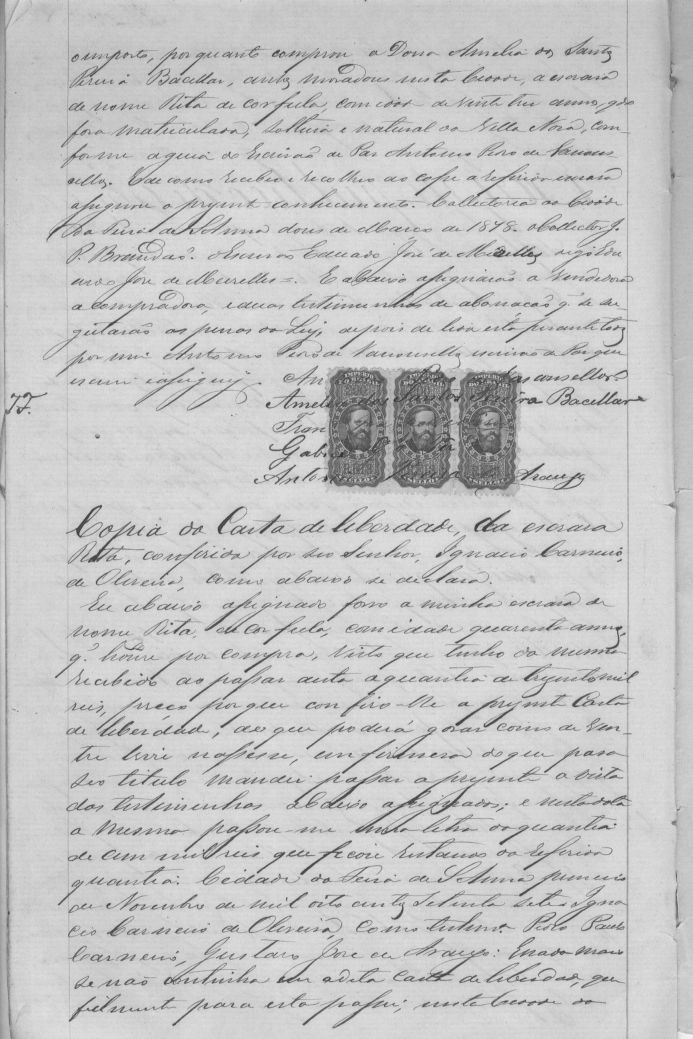 o imposto, por quanto comprou a Dona Amelia dos Santos
Pereira Bacellar, ambas moradoras nesta Cidade, a escrava
de nome Rita de cor fula, com idade de vinte tres annos, q̃
fora matriculada, solteira e natural da Villa Nova, con-
forme a guia do Escrivaõ de Paz Antonio Pedro de Vascon-
sellos. E de como recebeo e recolheo ao cofre a referida escrava
assignou o presente conhecimento. Collectoria da Cidade
da Feira de Sta Anna dous de Março de 1878. O Collector J.
P. Brandaõ. o Escrivaõ Eduardo José de Meirelles
José de Meirelles =. E abaixo assignaraõ a vendedora
a compradora, e duas testimunhas de abonacaõ q̃ se su-
geitaraõ as penas da Lei, depois de lida esta perante todos
por mim Antonio Pedro de Vasconsellos escrivaõ de Paz que
escrevi e assigney.
An Vasconsellos.
Amelia dos Santos Pereira Bacellar
Fran
Gabri
Anton Araujo
Copia da Carta de liberdade, da escrava
Rita, conferida por seo Senhor, Ignacio Carneiro,
de Oliveira, como abaixo se declara.
Eu abaixo assignado forro a minha escrava de
nome Rita, de cor fula, com idade quarenta annos,
q̃ houve por compra, visto que tenho da mesma
recebido ao passar desta a quantia de trezentos mil
reis, preço por que confiro-lhe a presente Carta
de liberdade, do que poderá gozar como de Ven-
tre livre nascesse, em firmeza do que para
seo titulo mandei passar a presente a vista
das testimunhas abaixo assignados; e nesta data
a mesma passou-me uma letra da quantia
de cem mil reis que ficou restando da referida
quantia. Cidade da Feira de Sta Anna primeiro
de Novembro de mil oito centos setenta sete. Igna
cio Carneiro de Oliveira, Como testemª Pedro Paulo
Carneiro, Gustavo José de Araujo: E nada mais
se não continha em a dita Carta de liberdade, que
fielmente para esta passei; nesta Cidade da